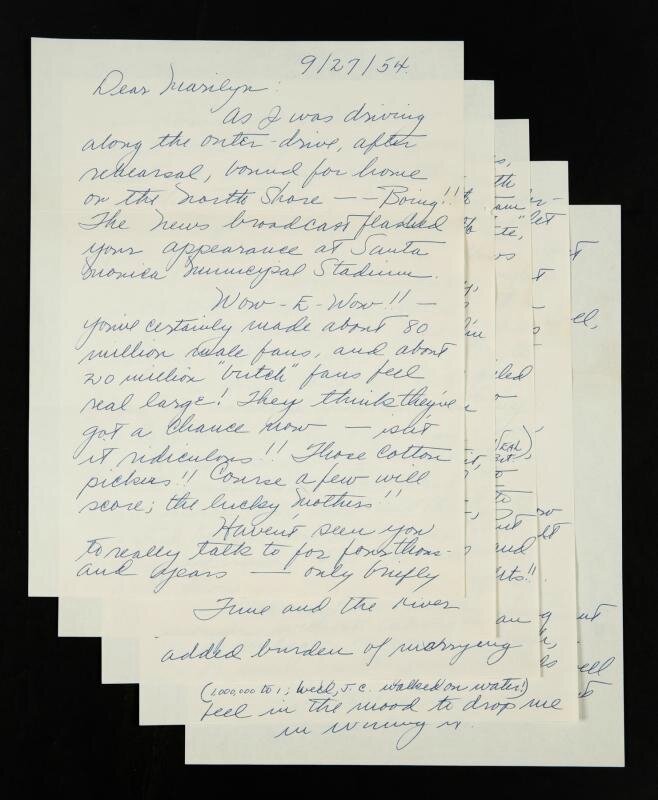 9/27/54.
Dear Marilyn:
As I was driving
along the outer-drive, after
rehearsal, bound for home
on the North Shore -- Boing!!
The news broadcast flashed
your appearance at Santa
Monica Municipal Stadium.
Wow-E-Wow!! -
you've certainly made about 80
million male fans, and about
20 million "butch" fans feel
real large! They think they've
got a chance now - isn't
it ridiculous!! Those cotton
pickers!! Course a few will
score; the lucky mothers!!
Haven't seen you
to really talk to for four thous-
and years — only briefly
June and the river
added burden of marrying
(1,000,000 to 1; well, J.C. walked on water!)
feel in the mood to drop me
in
ell,
led
and
ts!!
ell